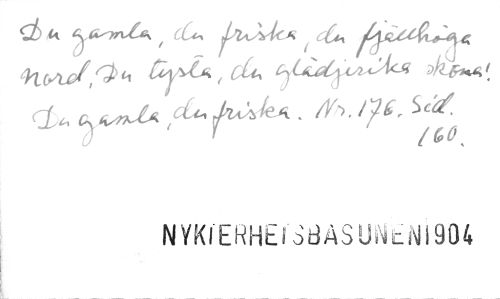 Du gamla, du friska, du fjällhöga
nord, Du tysta, du glädjerika sköna!
Du gamla, du friska. Nr. 176. Sid.
160.
NYKTERHETSBASUNEN 1904